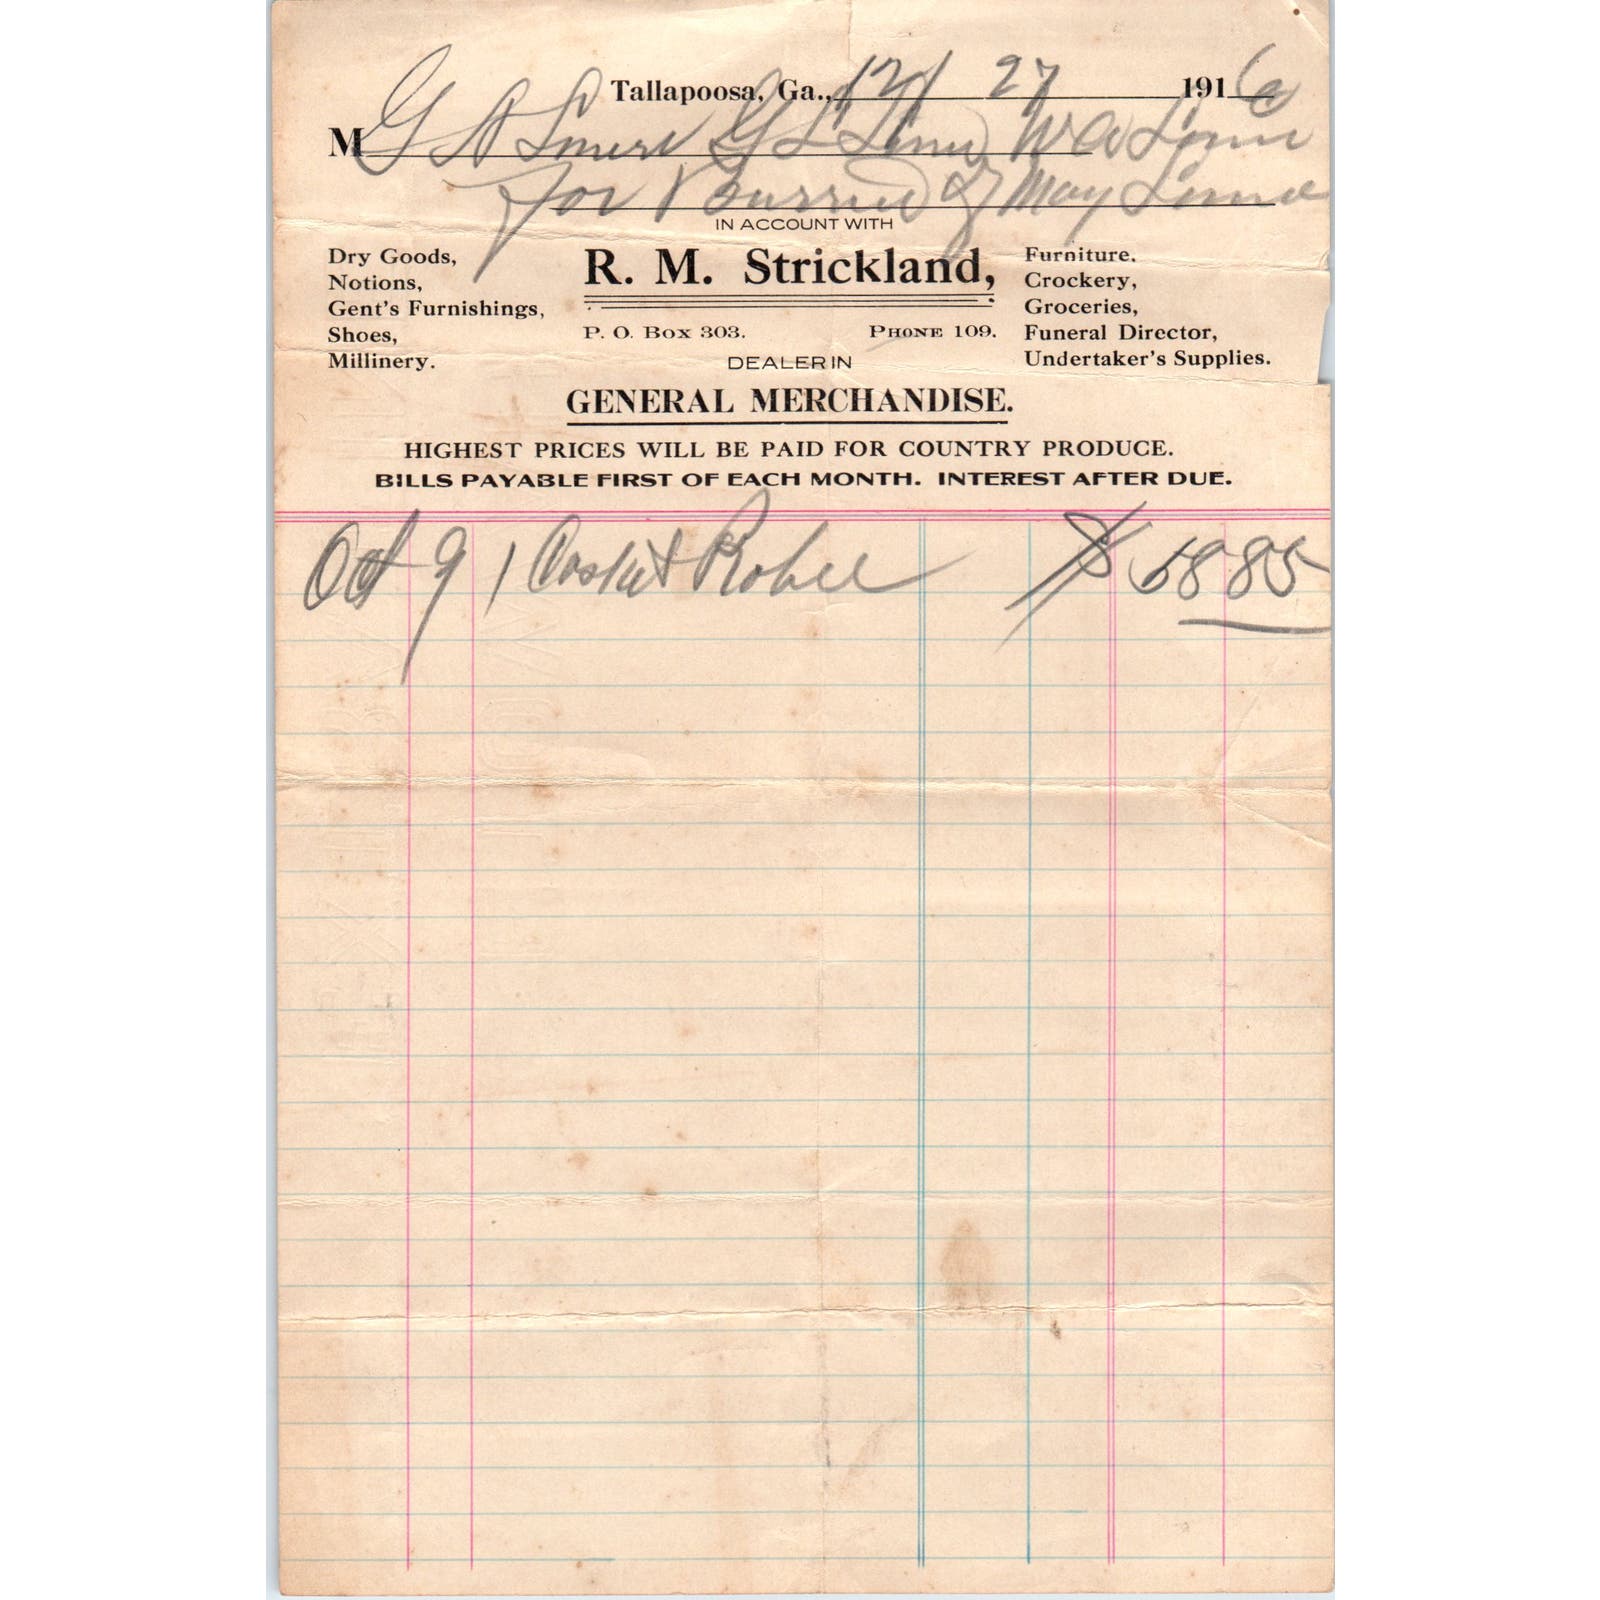 Tallapoosa, Ga., 12/27 1916
M G A G L W A
for of May
IN ACCOUNT WITH
R. M. Strickland,
P. O. Box 303. Phone 109.
Dry Goods,
Notions,
Gent's Furnishings,
Shoes,
Millinery.
Furniture.
Crockery,
Groceries,
Funeral Director,
Undertaker's Supplies.
DEALER IN
GENERAL MERCHANDISE.
HIGHEST PRICES WILL BE PAID FOR COUNTRY PRODUCE.
BILLS PAYABLE FIRST OF EACH MONTH. INTEREST AFTER DUE.
Oct 9 1 Casket & Robe $ 5885